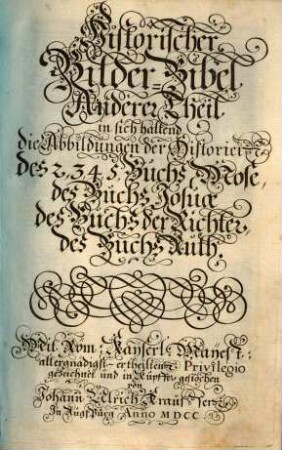 Historischer
Bilder Bibel
Anderer Theil
in sich haltend
die Abbildungen der Historien
des 2, 3, 4, 5. Buchs Mose,
des Buchs Josuæ
des Buchs der Richter,
des Buchs Ruth.
Mit Röm: Kayserl: Mayest:
allergnädigst-ertheiltem Privilegio
gezeichnet und in Kupffer gestochen
von
Johann Ulrich Krauß
In Augspurg Anno MDCC